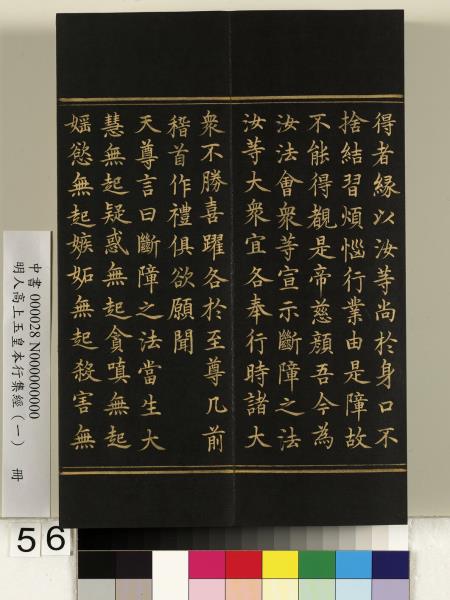 得者緣以汝等尚於身口不
捨結習煩惱行業由是障故
不能得覩是帝慈顔吾今為
汝法會衆等宣示斷障之法
汝等大衆宜各奉行時諸大
衆不勝喜躍各於至尊几前
稽首作禮俱欲願聞
天尊言曰斷障之法當生大
慧無起疑惑無起貪嗔無起
婬慾無起嫉妬無起殺害無
中書 000028 N000000000
明人高上玉皇本行集經(一) 冊
56